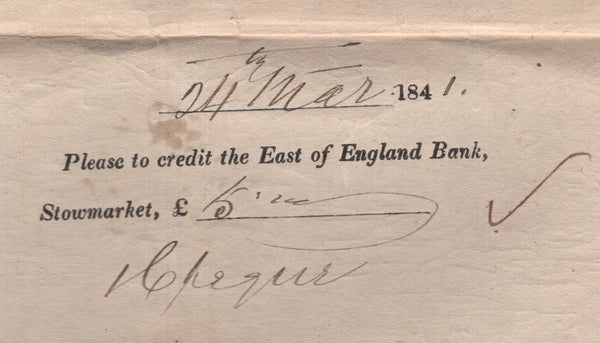 24th Mar 1841.
Please to credit the East of England Bank,
Stowmarket, £ 5
1 Cheque